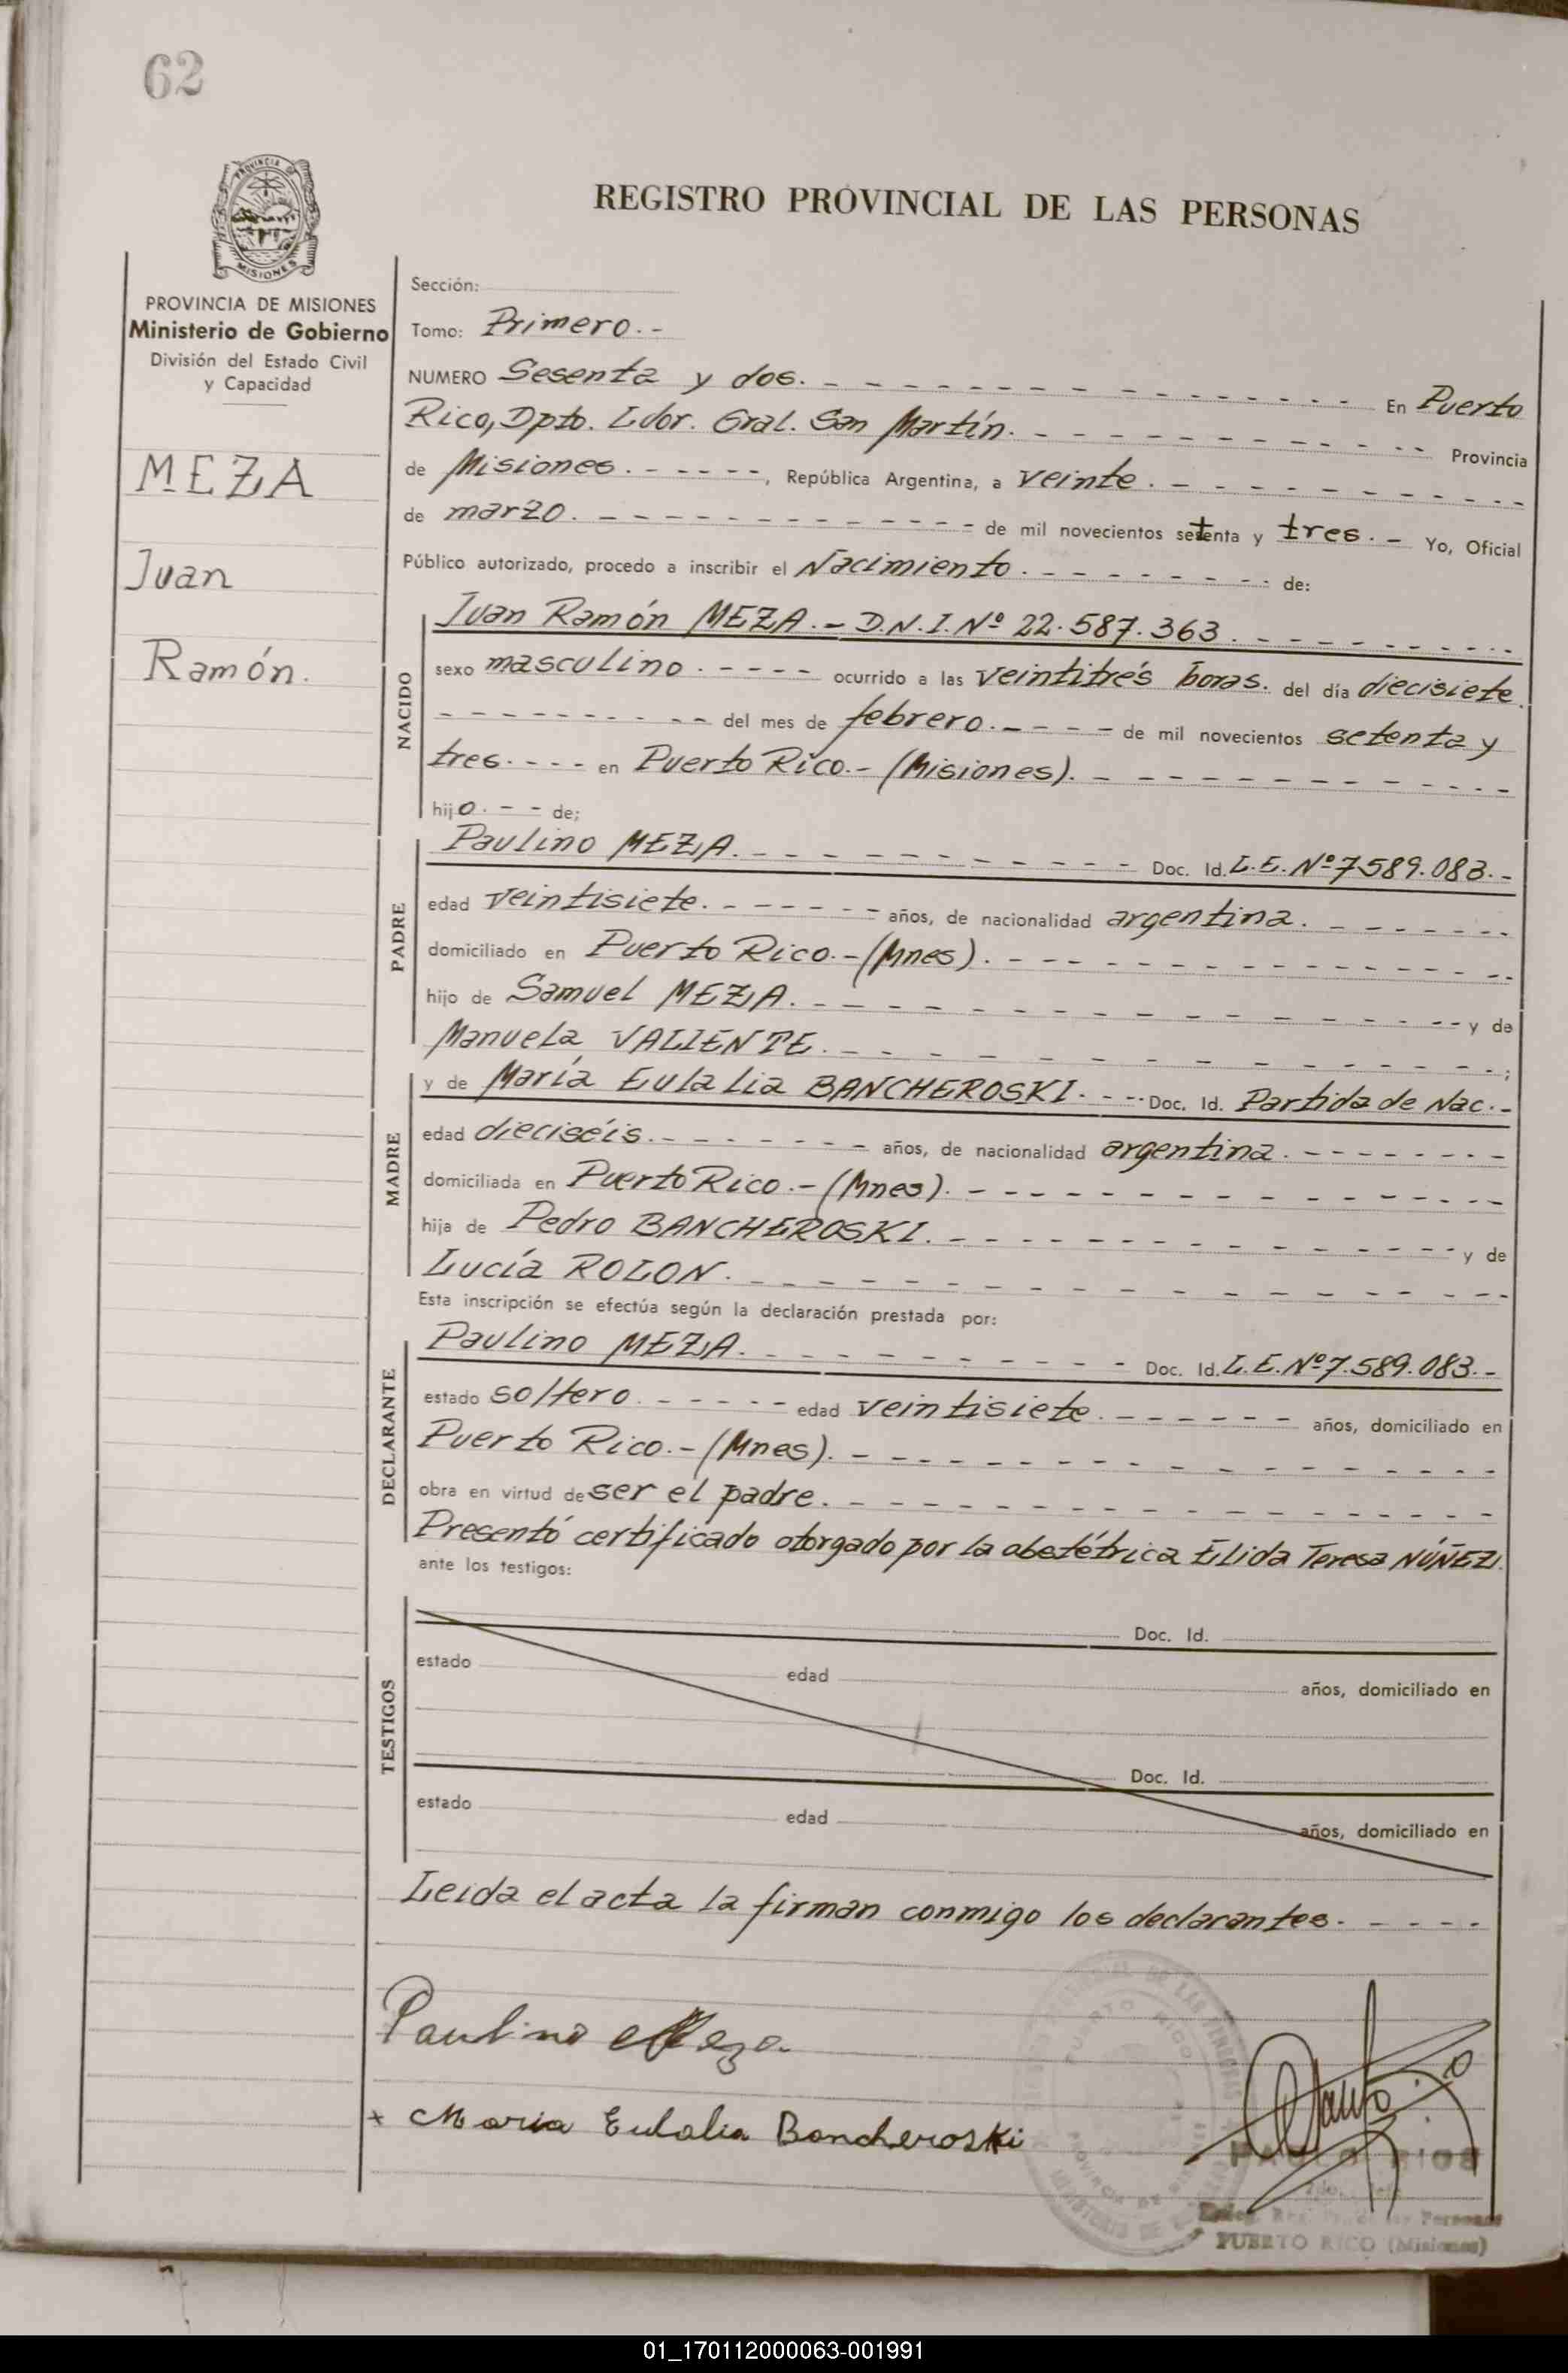 62
PROVINCIA DE
MISIONES
REGISTRO PROVINCIAL DE LAS PERSONAS
PROVINCIA DE MISIONES
Ministerio de Gobierno
División del Estado Civil
y Capacidad
MEZA
Juan
Ramón.
Sección:
Tomo: Primero.-
NUMERO Sesenta y dos. - - - En Puerto
Rico, Dpto. Ldor. Gral. San Martín. - - - Provincia
de Misiones. - - - - -, República Argentina, a veinte. - - -
de marzo. - - - de mil novecientos setenta y tres. - Yo, Oficial
Público autorizado, procedo a inscribir el Nacimiento. - - - de:
NACIDO
Juan Ramón MEZA.- D.N.I. Nº 22.587.363. - - -
sexo masculino. - - - - - ocurrido a las veintitrés horas. del día diecisiete.
- - - del mes de febrero. - - - - de mil novecientos setenta y
tres. - - - en Puerto Rico.- (Misiones). - - -
hijo. - - de;
PADRE
Paulino MEZA. - - - Doc. Id. L.E. Nº 7589.083.-
edad veintisiete. - - - años, de nacionalidad argentina. - - -
domiciliado en Puerto Rico.-(Mnes). - - -
hijo de Samuel MEZA. - - - y de
Manuela VALIENTE. - - - ;
MADRE
y de María Eulalia BANCHEROSKI. - - - Doc. Id. Partida de Nac.-
edad dieciséis. - - - años, de nacionalidad argentina. - - -
domiciliada en Puerto Rico.-(Mnes). - - -
hija de Pedro BANCHEROSKI. - - - y de
Lucía ROLON. - - -
Esta inscripción se efectúa según la declaración prestada por:
DECLARANTE
Paulino MEZA. - - - Doc. Id. L.E. Nº 7.589.083.-
estado soltero. - - - edad veintisiete. - - - años, domiciliado en
Puerto Rico.-(Mnes). - - -
obra en virtud de ser el padre. - - -
Presentó certificado otorgado por la obstétrica Élida Teresa NÚÑEZ.
ante los testigos:
TESTIGOS
Doc. Id.
estado edad años, domiciliado en
Doc. Id.
estado edad años, domiciliado en
Leida el acta la firman conmigo los declarantes. - - - -
Paulino Meza.
+ Maria Eulalia Bancheroski
PUERTO RICO
PROVINCIA DE
MINISTERIO DE
RIOS
PUERTO RICO (Misiones)
01_170112000063-001991